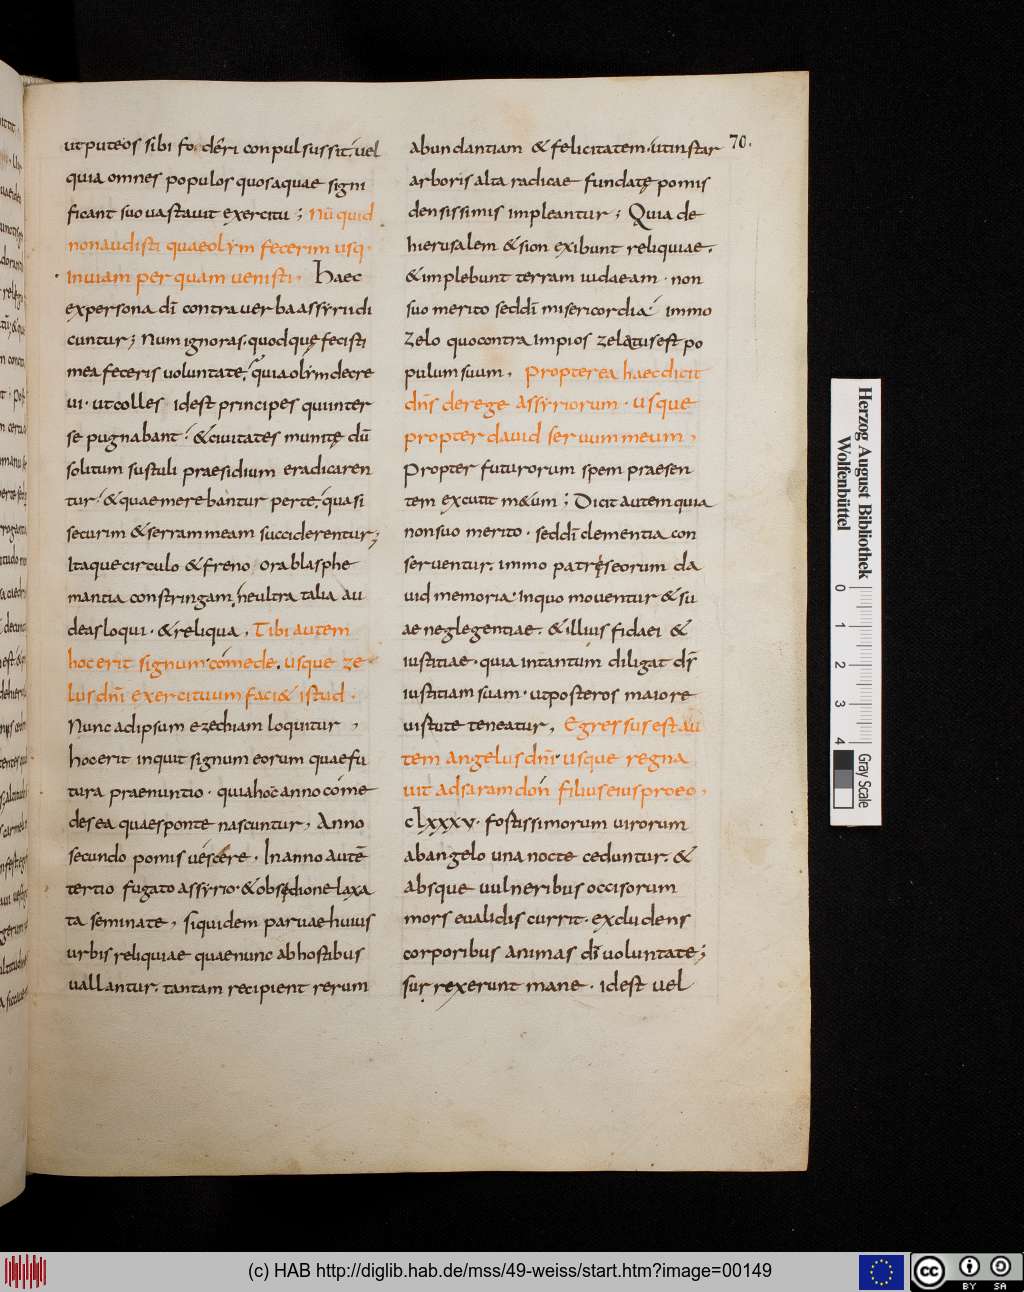 utputeos sibi foderi conpulsussit; uel
quia omnes populos quosaquae signi
ficant suo uastauit exercitu; Nū quid
nonaudisti quaeolym fecerim usq·
inuiam per quam uenisti· Haec
expersona dī contrauerba assyrii di
cuntur; Num ignoras·quodquę fecisti
mea feceris uoluntate; quia olym decre
ui· utcolles idest principes quiinter
se pugnabant; &ciuitates munitę dū
solitum sustuli praesidium eradicaren
tur; &quaemerebantur perte; quasi
securim &serram meam succiderentur;
Itaque circulo &freno ora blasphe
mantia constringam, neultra talia au
deas loqui· &reliqua, Tibi autem
hocerit signum·comede. usque ze
lus dnī exercituum faci& istud.
Nunc adipsum ezechiam loquitur,
hocerit inquit signum eorum quaefu
tura praenuntio· quiahoc anno come
desea quaesponte nascuntur, Anno
secundo pomis uescere· In anno autē
tertio fugato assyrio·&obsedione laxa
ta seminate, siquidem paruae huius
urbis reliquiae quaenunc abhostibus
uallantur. tantam recipient rerum
abundantiam &felicitatem·utinstar
arboris alta radicae fundatę pomis
densissimis impleantur; Quia de
hierusalem &sion exibunt reliquiae.
&implebunt terram iudaeam· non
suo merito seddī misericordia immo
zelo quocontra impios zelatusest po
pulum suum, Propterea haecdicit
dnś derege assyriorum· usque
propter dauid seruum meum,
Propter futurorum spem praesen
tem excutit m&um; Dicit autem quia
nonsuo merito· seddī clementia con
seruentur. immo patrię seorum da
uid memoria·inquo mouentur &su
ae neglegentiae. &illius fidaei &
iustitiae·quia intantum diligat dś
iustitiam suam· utposteros maiore
uirtute teneatur, Egressus est au
tem angelus dnī usque regna
uit adsaramdon filius eius proeo,
clxxxv· fortissimorum uirorum
abangelo una nocte ceduntur. &
absque uulneribus occisorum
mors eualidis currit· excludens
corporibus animas dī uoluntate;
surrexerunt mane· idest uel
70.
Herzog August Bibliothek
Wolfenbüttel
0 1 2 3 4
Gray Scale
(c) HAB http://diglib.hab.de/mss/49-weiss/start.htm?image=00149
cc BY SA